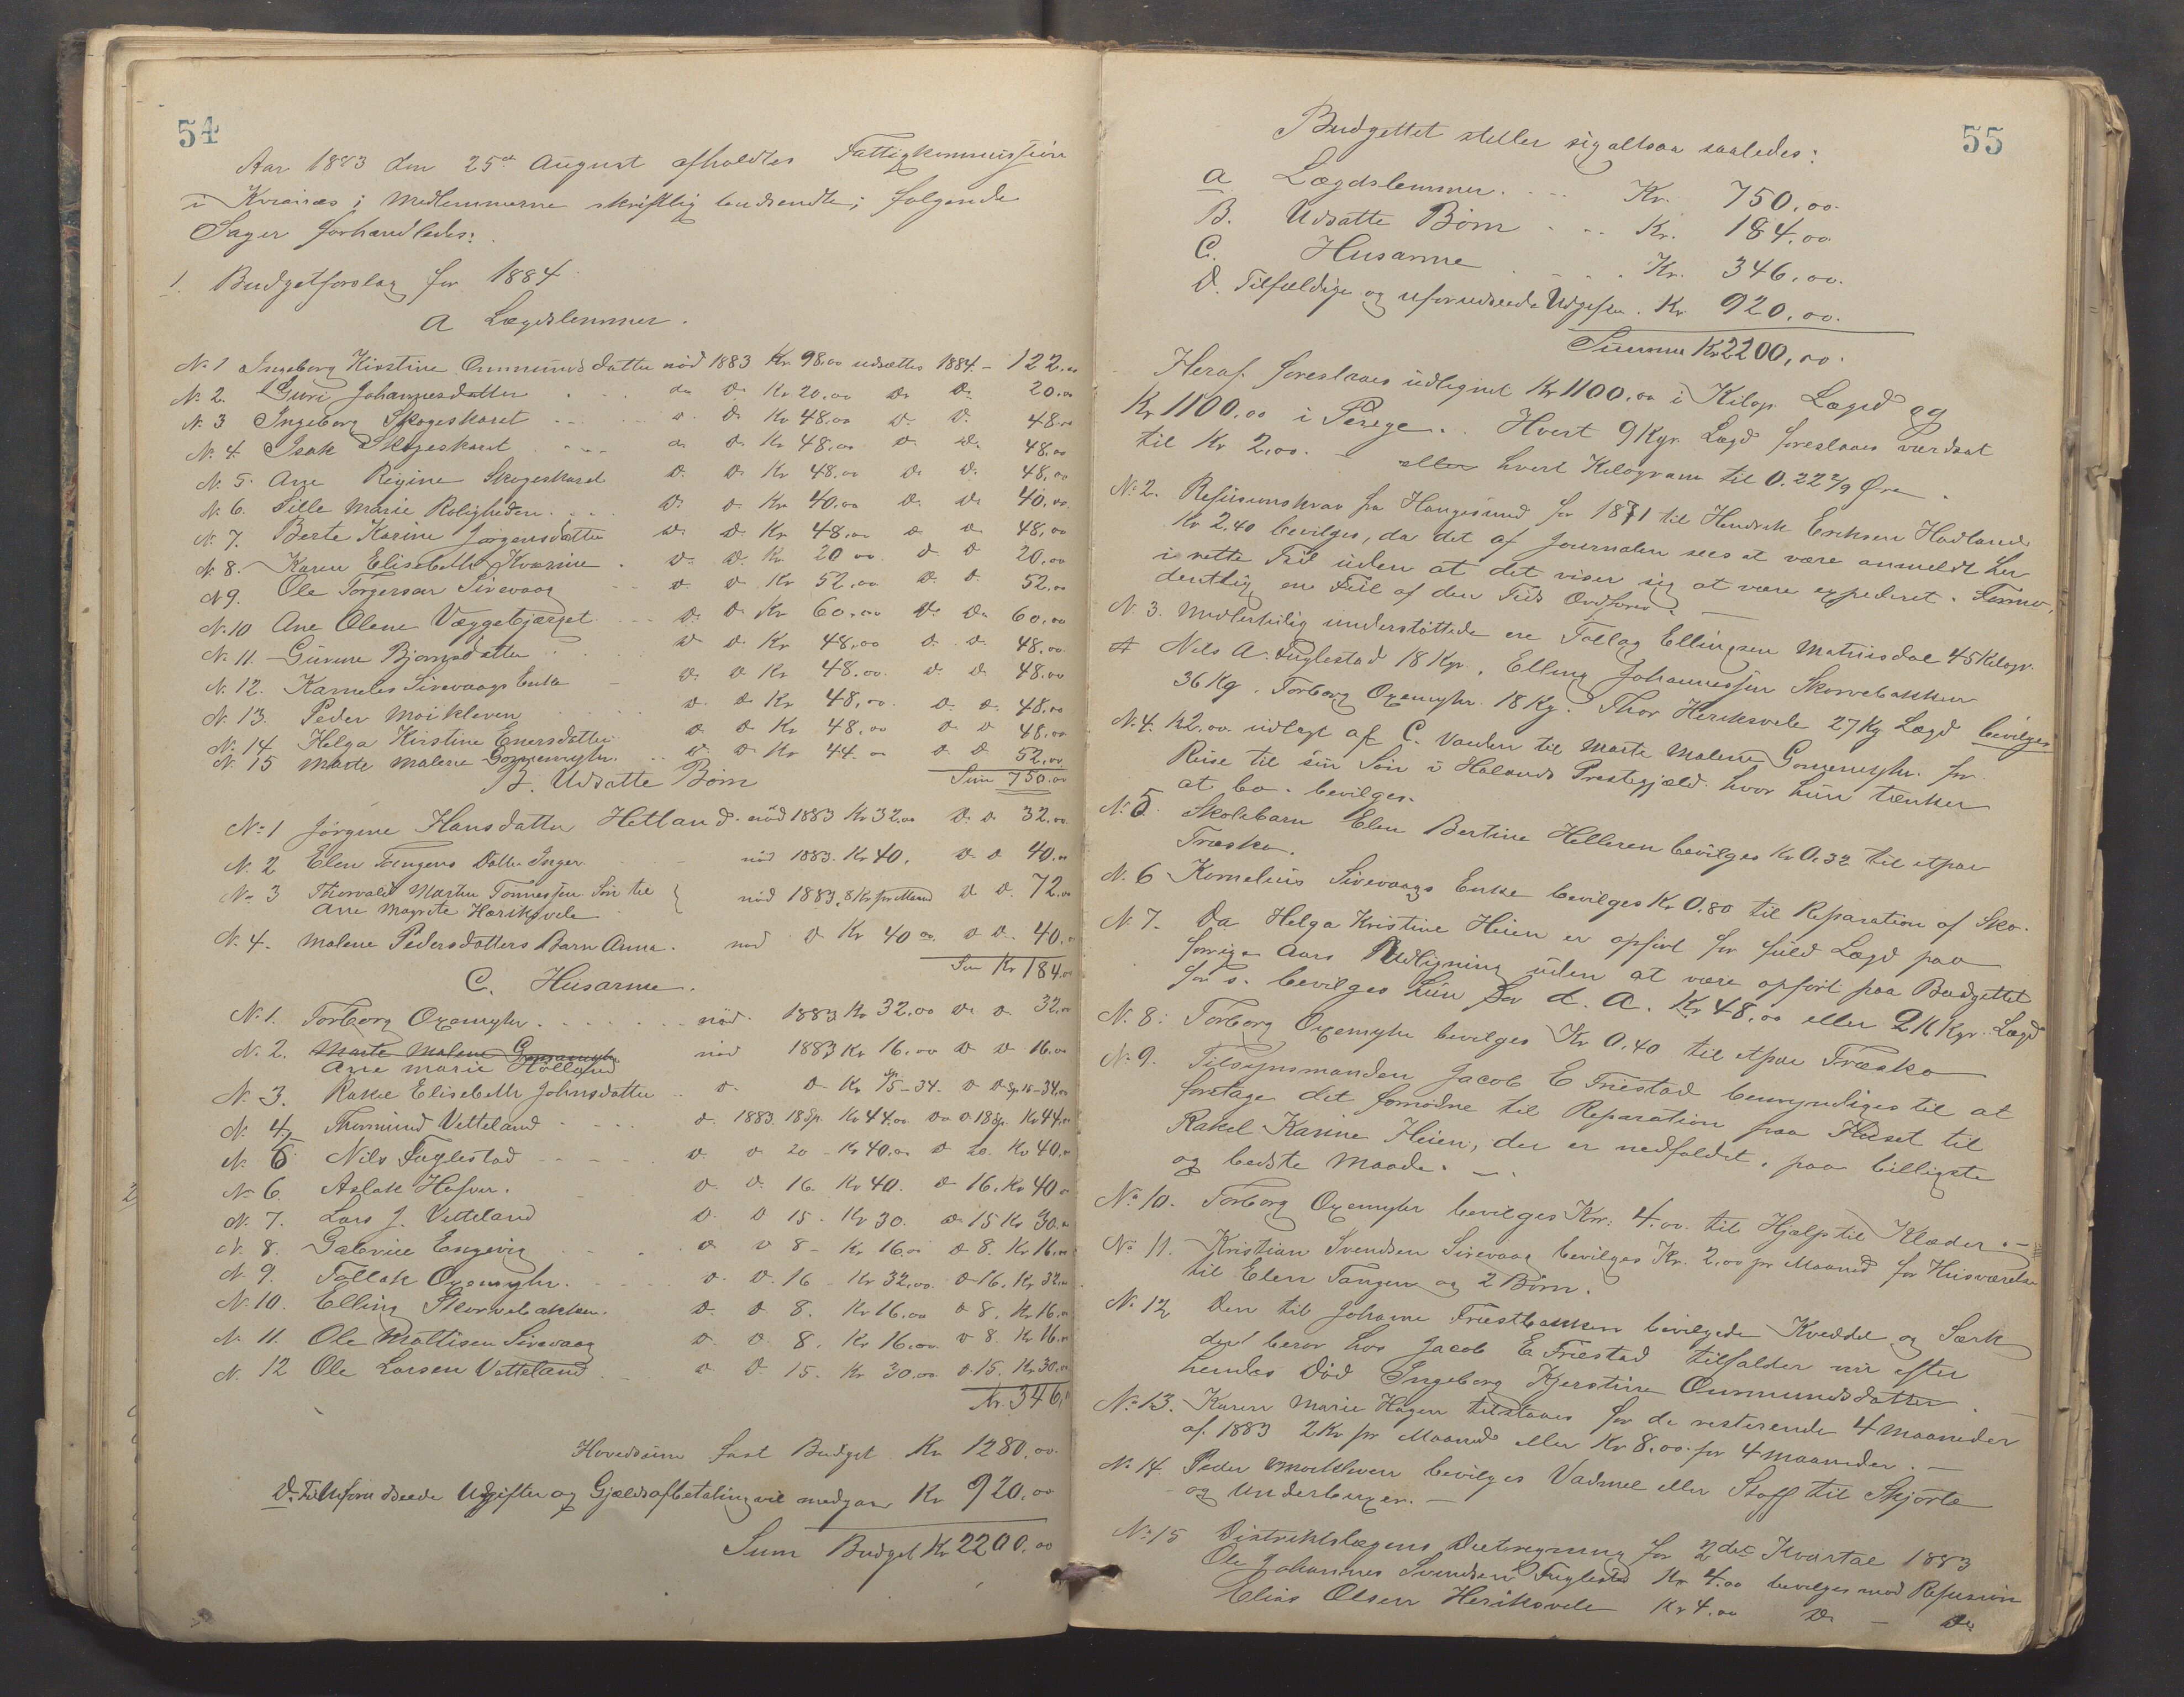 54
Aar 1883 den 25de August afholdtes Fattigkommission
i Kvasnæs; Medlemmerne skriftlig ; følgende
Sager forhandledes:
1. Budgetforslag for 1884
A Lægdslemmer.
No 1 Ingeborg Kirstine Ommundsdatter nød 1883 Kr 98,00 udsættes 1884 - 122,00
No 2. Guri Johannesdatter . . . do Do Kr 20,00 Do Do 20,00
No 3 Ingeborg Skogeskaret . . . Do Do Kr 48,00 Do Do 48,00
No 4. Isak Skogeskaret . . . do Do Kr 48,00 Do Do 48,00
No 5. Ane Regine Skogeskaret Do Do Kr 48,00 Do Do 48,00
No 6. Sille Marie Roligheden . . . Do Do Kr 40,00 Do Do 40,00
No 7. Berte Karine Jørgensdatter Do Do Kr 48,00 Do Do 48,00
No 8. Karen Elisabeth Kvasnæs . Do Do Kr 20,00 Do Do 20,00
No 9. Ole Torgersen Sirevaag Do Do Kr 52,00 Do Do 52,00
No 10 Ane Olene Væggebjærget . . . Do Do Kr 60,00 Do Do 60,00
No 11. Gurene Bjørnsdatter . . . Do Do Kr 48,00 Do Do 48,00
No 12. Karnelis Sirevaags Enke - Do Do Kr 48,00 Do Do 48,00
No 13. Peder Moikleven . . . Do Do Kr 48,00 Do Do 48,00
No 14 Helga Kirstine Enersdatter Do Do Kr 48,00 Do Do 48,00
No 15 Marte Malene Gommemyhr. . . Do Do Kr 44.00 Do Do 52,00
B. Udsatte Børn Sum 750.00
No 1 Jørgine Hansdatter Hetland. nød 1883 Kr 32,00 Do Do 32,00
No 2 Elen Tangens Datter Inger . . nød 1883. Kr 40, Do Do 40,00
No 3 Thorvald Martin Tønnessen Søn til nød 1883, 8 Kr pr Maaned Do Do. 72,00
Ane Magrete Hæriksvele
No 4. Malene Pedersdatters Barn Anna. nød Do Kr 40 00 Do Do. 40,00
Sum Kr 184,00
C. Husarme.
No 1. Torborg Oxemyhr . . . . nød. 1883 Kr 32,00 Do Do 32,00
No 2. Marte Malene Gommemyhr nød 1883 Kr 16,00 Do Do 16,00
Ane Marie Holland
No 3. Rakel Elisabeth Johnsdatter . . Do Do Kr Sp 15-34. Do Do Sp 15-34,00
No 4, Thormund Vetteland . . . Do 1883. 18 Sp. Kr 44,00 Do Do 18 Sp. Kr 44,00
No 5 Nils Fuglestad . . . Do Do 20 - Kr 40,00 Do 20. Kr 40,00
No 6. Aslak Hafver. Do Do 16. Kr 40. Do 16. Kr 40,00
No 7. Lars J. Vetteland Do Do 15. Kr 30. Do 15 Kr 30,00
No 8. Gabriel Engevig . . . Do Do 8 - Kr 16.00 Do 8. Kr 16,00
No 9. Tollak Oxemyhr. . . . Do Do 16 - Kr 32,00. Do 16. Kr 32,00
No 10. Elling Skorvebakken. . Do Do 8. Kr 16,00 Do 8. Kr 16,00
No 11. Ole Mattisen Sirevaag Do Do 8. Kr 16,00 Do 8. Kr 16,00
No 12 Ole Larsen Vetteland . . Do Do 15. Kr 30,00 Do 15. Kr 30,00
Kr. 346,
Hovedsum fast Budget Kr 1280,00
D. Til Uforudseede Udgifter og Gjældsafbetaling vil medgaa Kr 920,00
Sum Budget Kr 2200,00
55
Budgettet stiller sig altsaa saaledes:
A Lægdslemmer. . . . Kr. 750,00.
B. Udsatte Børn . . . Kr. 184,00
C. Husarme . . . Kr. 346,00.
D. Tilfældige og uforudseede Udgifter. Kr 920,00.
Summa Kr 2200,00.
Heraf foreslaaes udlignet Kr 1100,00 i Kilogr. Lægd og
Kr 1100,00 i Penge. . Hvert 9 Kgr. Lægd foreslaaes værdsat
til Kr 2,00. - eller hvert Kilogram til 0.22 2/9 Øre.
No 2. Refusionskrav fra Haugesund for 1871 til Hendrik Eriksen Hadland
Kr 2.40 bevilges, da det af Journalen sees at være anmeldt her
i rette Tid uden at det viser sig at være expederet. Formo-
dentlig en Feil af den Tids Ordfører. -
No 3. Midlertidig understøttede ere Tollag Ellingsen Matriisdal 45 Kilogr.
Nils A. Fuglestad 18 Kgr., Elling Johannessen Skorvebakken
36 Kg. Torborg Oxemyhr 18 Kg. Thor Heriksvele 27 Kg Lægd bevilges
No 4. Kr 2,00 udlagt af C. Vanden til Marte Malene Gommemyhr for
Reise til sin Søn i Halands Prestegjæld. hvor hun tænker
at bo. bevilges.
No 5. Skolebarn Elen Bertine Helleren bevilges Kr 0.32 til et par
Træsko.
No 6 Kornelius Sirevaags Enke bevilges Kr 0,80 til Reparation af Sko.
No 7. Da Helga Kristine Heien er opført for fuld Lægd paa
forrige Aars Udligning uden at være opført paa Budgettet
for s. bevilges hun for d. A. Kr 48,00 eller Kgr. Lægd
No 8: Torborg Oxemyhr bevilges Kr 0.40 til et par Træsko
No 9. Tilsynsmanden Jacob E Friestad bemyndiges til at
foretage det fornødne til Reparation paa Huset til
Rakel Karine Heien, der er nedfaldet, paa billigste
og bedste Maade. -
No 10. Torborg Oxemyhr bevilges Kr. 4.00. til Hjælp til Klæder. -
No 11. Kristian Svendsen Sirevaag bevilges Kr. 2,00 pr Maaned for Husværelse
til Elen Tangen og 2 Børn.
No 12 Den til Johanne Friestbakken bevilgede Kveddel og Særk
der beror hos Jacob E Friestad tilfalder nu efter
hendes Død Ingeborg Kjerstine Ommundsdatter.
No 13. Karen Marie Hagen tilstaaes for de resterende 4 Maaneder
af 1883 2 Kr pr Maaned eller Kr 8,00 for 4 Maaneder. -
No 14. Peder Moikleven bevilges Vadmel eller Stoff til Skjorte
og Underbuxer. -
No 15 Distriktslægens Diætregning for 2det Kvartal 1883
Ole Johannes Svendsen Fuglestad Kr 4,00 bevilges mod Refusion
Elias Olsen Heriksvele Kr 4,00 Do - Do